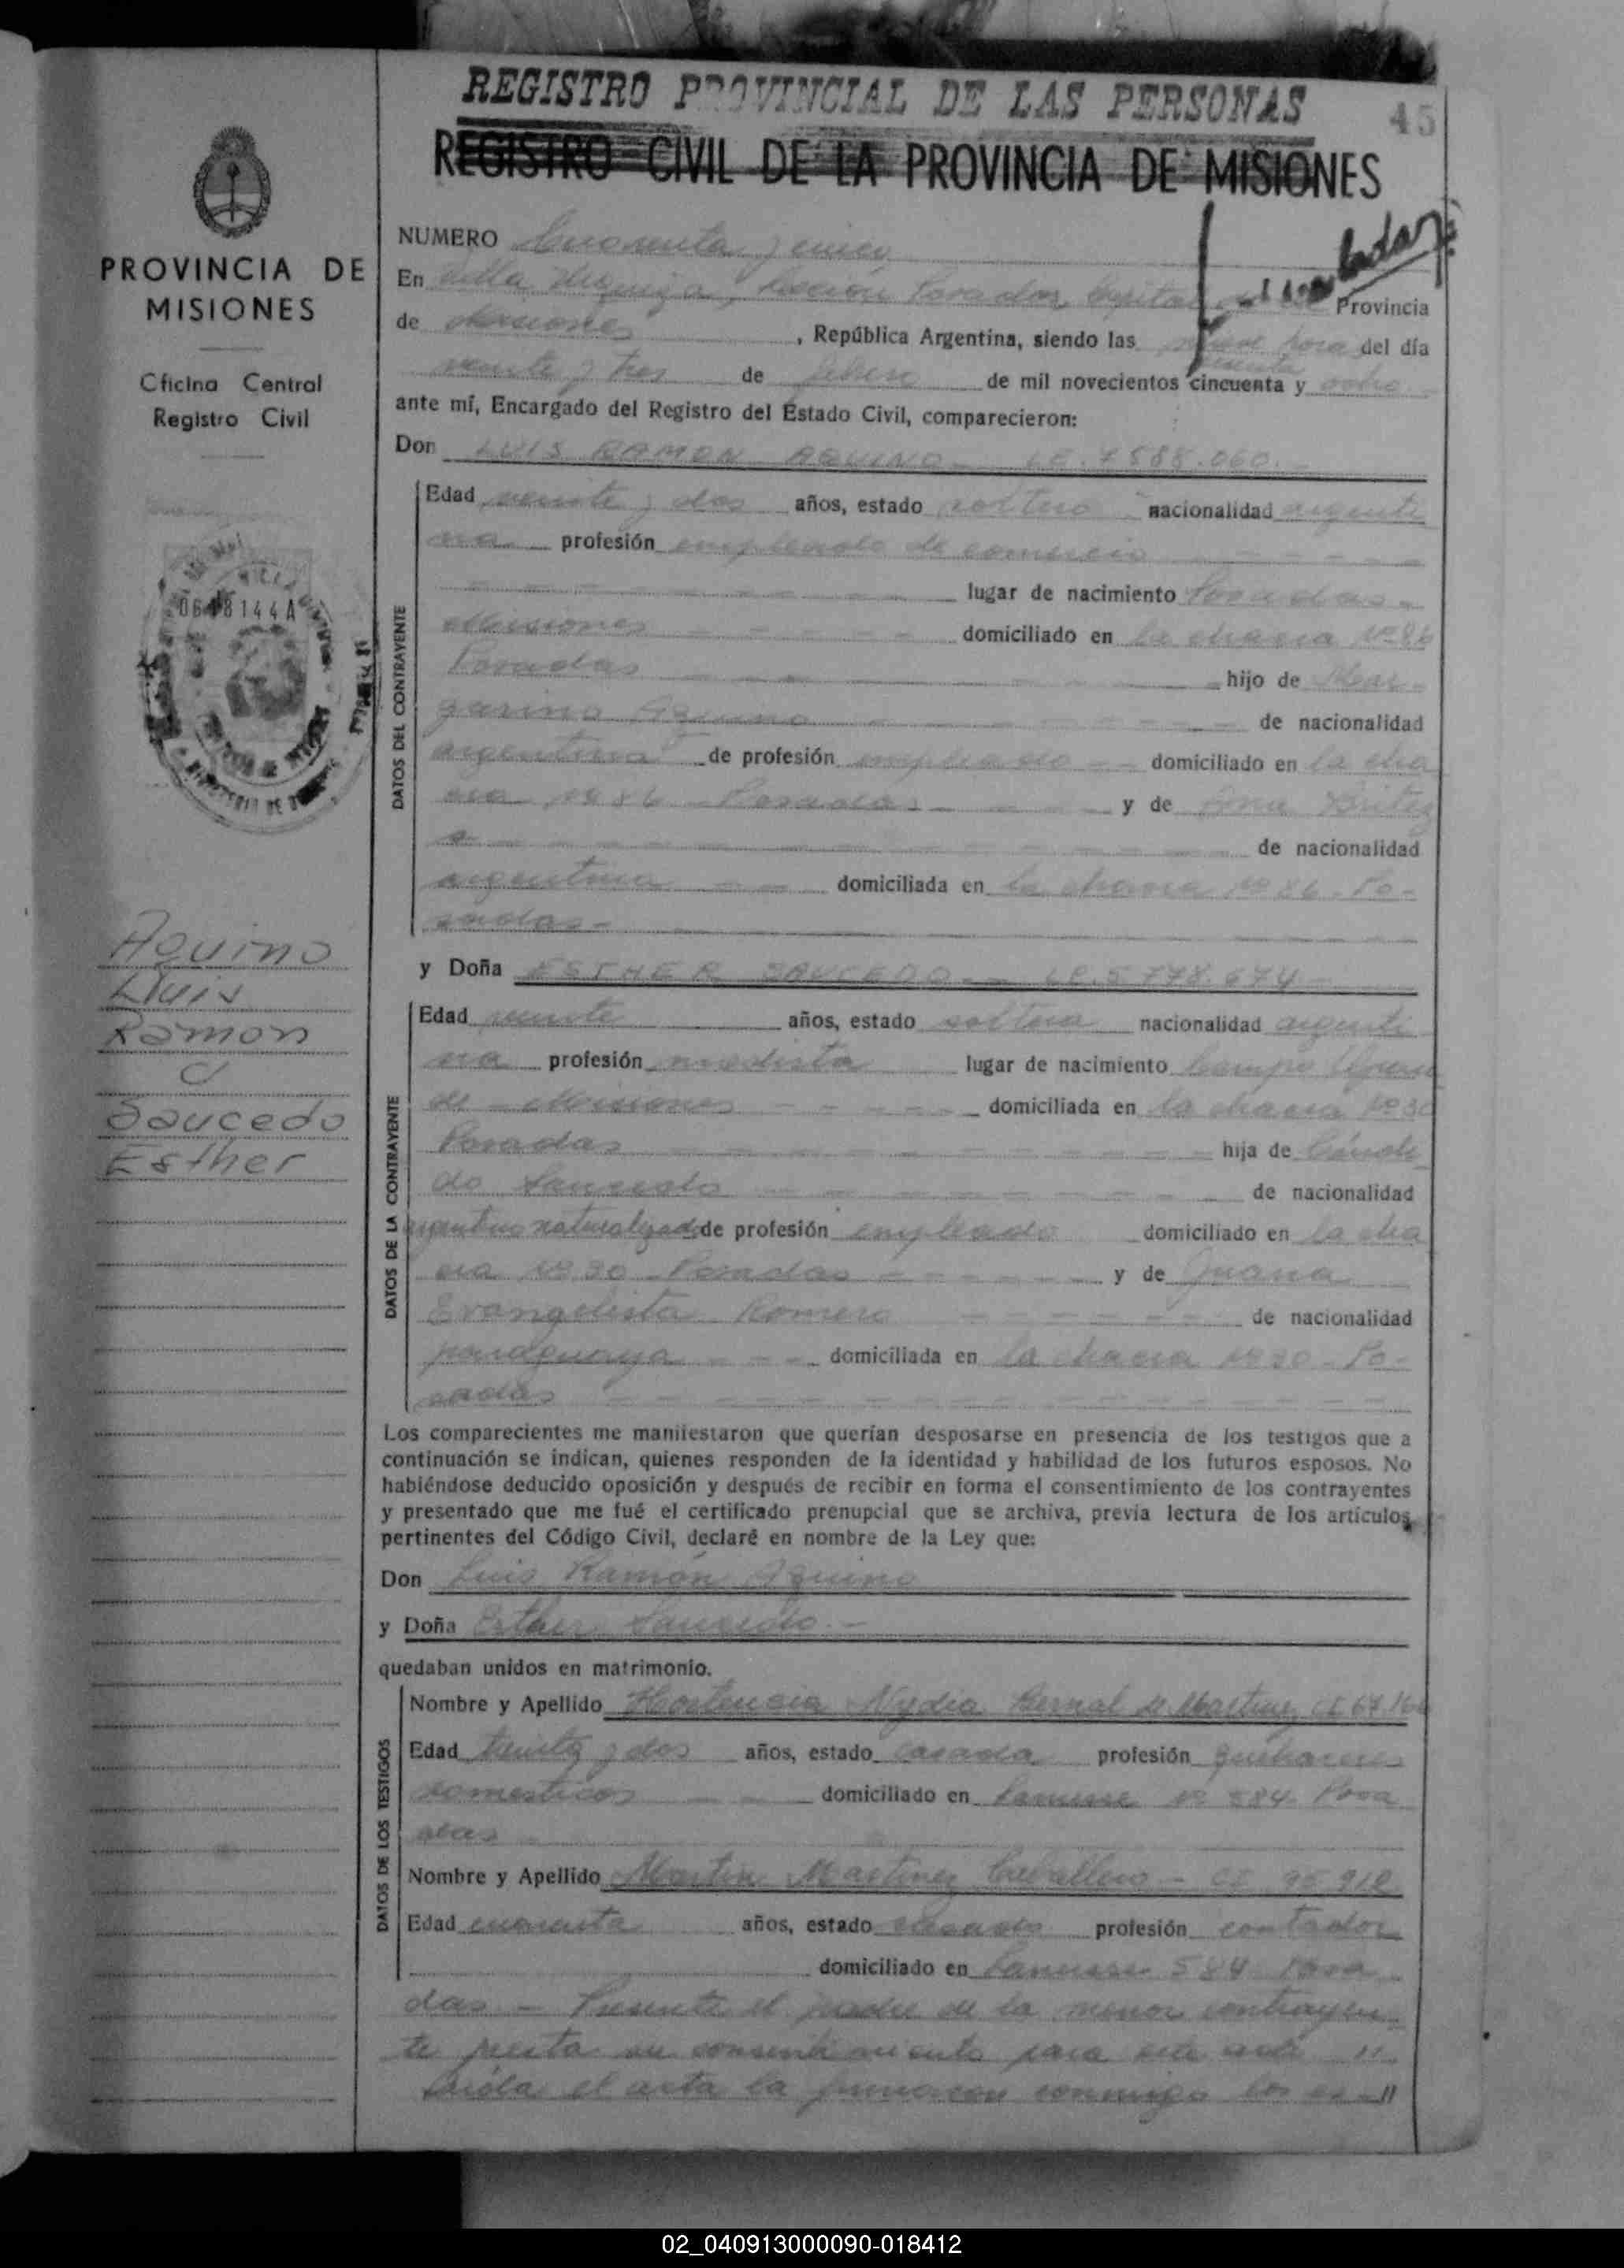 REGISTRO PROVINCIAL DE LAS PERSONAS
45
REGISTRO CIVIL DE LA PROVINCIA DE MISIONES
PROVINCIA DE
MISIONES
Oficina Central
Registro Civil
0648144A
Aquino
Luis
Ramon
c/
Saucedo
Esther
NUMERO Cuarenta y cinco
En Villa Urquiza, Sección Posadas, Capital Provincia
de Misiones, República Argentina, siendo las hora del día
veinte y tres de febrero de mil novecientos cincuenta y ocho
ante mí, Encargado del Registro del Estado Civil, comparecieron:
Don LUIS RAMON AQUINO - LE. 7588.060.-
Edad veinte y dos años, estado soltero nacionalidad argenti
na profesión empleado de comercio
lugar de nacimiento Posadas -
Misiones domiciliado en la chacra Nº 86
Posadas hijo de Mar-
garino Aquino de nacionalidad
argentina de profesión empleado domiciliado en la cha
cra Nº 86 - Posadas - y de Brites
de nacionalidad
argentina domiciliada en la chacra Nº 86 - Po-
sadas -
y Doña ESTHER SAUCEDO - LC. 5778.674
Edad veinte años, estado soltera nacionalidad argenti
na profesión modista lugar de nacimiento Campo
de - Misiones domiciliada en la chacra Nº 30
Posadas hija de Cándi
do Saucedo de nacionalidad
argentino naturalizado de profesión empleado domiciliado en la cha
cra Nº 30 - Posadas y de Juana
Evangelista Romero de nacionalidad
paraguaya domiciliada en la chacra Nº 30 - Po-
sadas
Los comparecientes me manifestaron que querían desposarse en presencia de los testigos que a
continuación se indican, quienes responden de la identidad y habilidad de los futuros esposos. No
habiéndose deducido oposición y después de recibir en forma el consentimiento de los contrayentes
y presentado que me fué el certificado prenupcial que se archiva, previa lectura de los artículos
pertinentes del Código Civil, declaré en nombre de la Ley que:
Don Luis Ramón Aquino
y Doña Esther Saucedo -
quedaban unidos en matrimonio.
Nombre y Apellido Hortencia Nydia Bernal de Martinez CI 67.
Edad treinta y dos años, estado casada profesión quehaceres
domesticos domiciliado en Lanusse Nº 584 Posa
das
Nombre y Apellido Martin Martinez Caballero - CI 95 912
Edad cuarenta años, estado casado profesión contador
domiciliado en Lanusse 584 Posa
das - Presente el padre de la menor contrayen-
te presta su consentimiento para este acto
Leída el acta la firmaron conmigo los
DATOS DEL CONTRAYENTE
DATOS DE LA CONTRAYENTE
DATOS DE LOS TESTIGOS
02_040913000090-018412